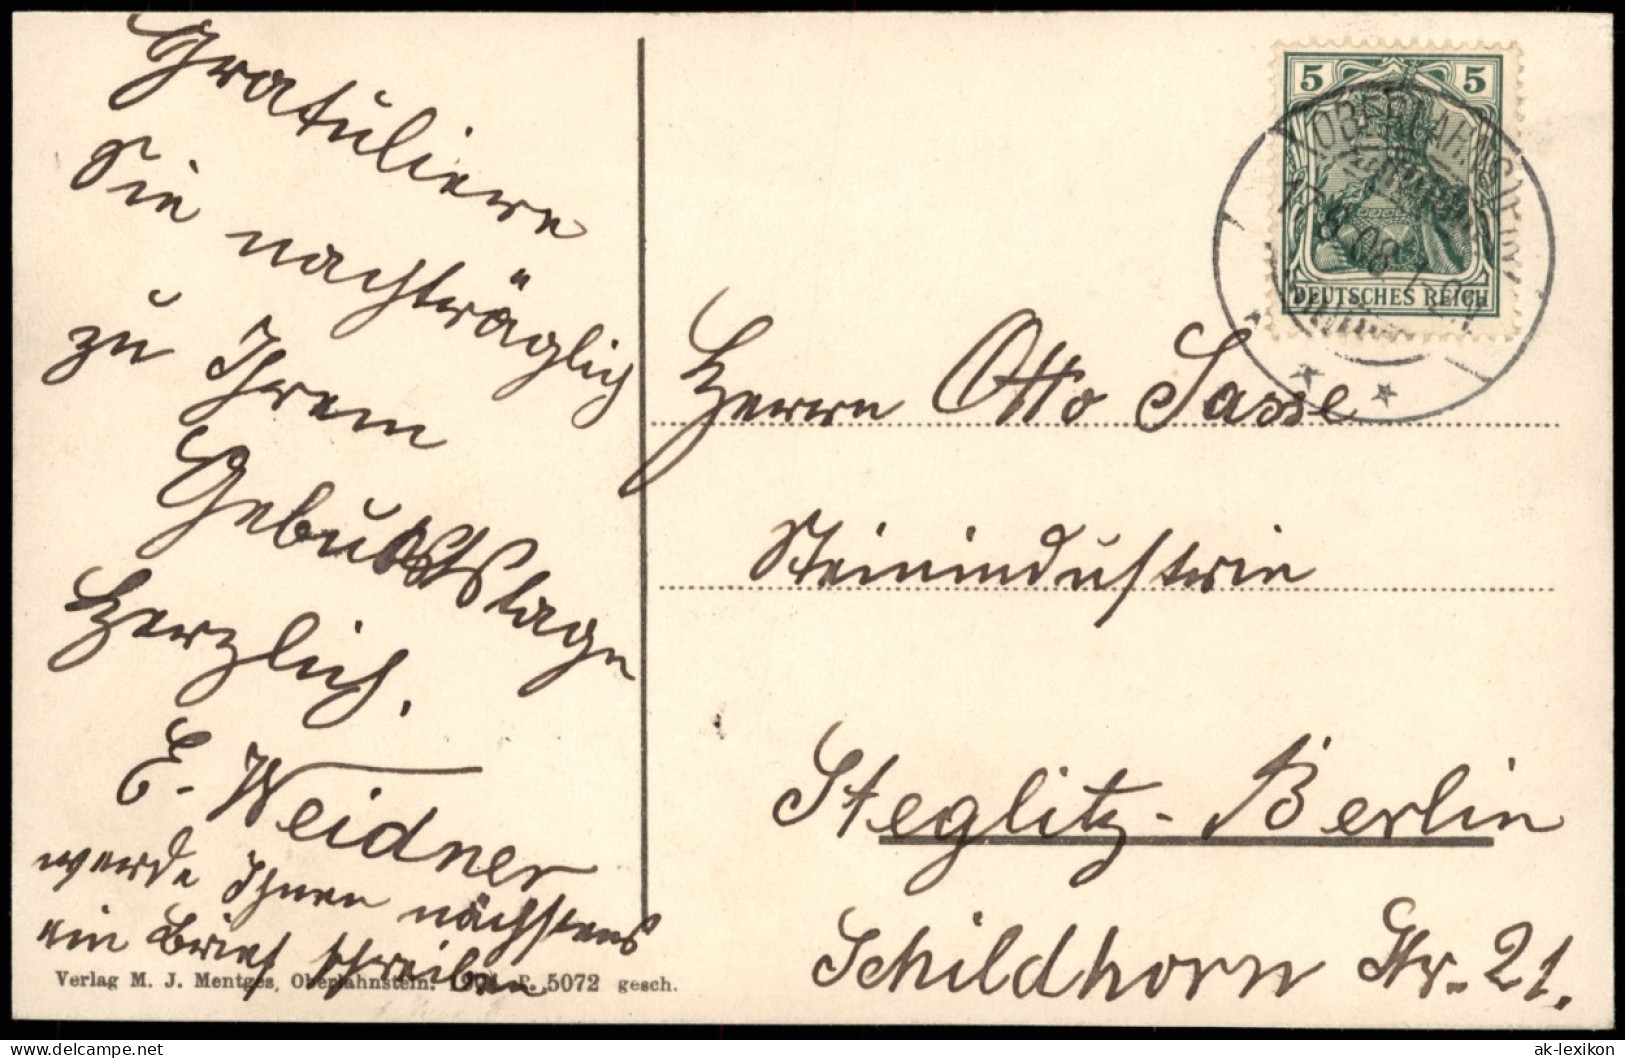 Gratuliere
Sie nachträglich
zu Ihrem
Gebutstage
Herzlich.
E. Weidner
werde Ihnen nächstens
ein Brief schreiben
Verlag M. J. Mentges, Oberlahnstein. 5072 gesch.
5 5
DEUTSCHES REICH
OBERLAHNSTEIN
Herrn Otto Sasse
Steinindustrie
Steglitz-Berlin
Schildhorn Str. 21.
www.delcampe.net
ak-lexikon